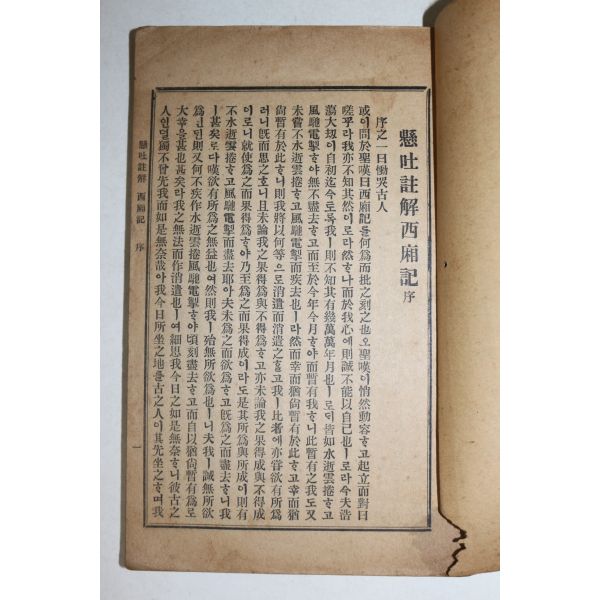 懸吐註解西廂記 序
序之一曰慟哭古人
或이問於聖嘆曰西廂記를何爲而批之刻之也오聖嘆이悄然動容ᄒᆞ고起立而對曰
嗟乎라我亦不知其然이로라然ᄒᆞ나而於我心애則誠不能以自已也ㅣ로라今夫浩
蕩大刼이自初迄今토록我ㅣ則不知其有幾萬萬年月也ㅣ로ᄃᆡ皆如水逝雲捲ᄒᆞ고
風馳電掣ᄒᆞ야無不盡去ᄒᆞ고而至於今年今月ᄒᆞ야而暫有我ᄒᆞ니此暫有之我도又
未嘗不水逝雲捲ᄒᆞ고風馳電掣而疾去也ㅣ라然而幸而猶尙暫有於此ᄒᆞ고幸而猶
尙暫有於此ᄒᆞ니則我將以何等으로消遣而消遣之ᄒᆞ고我ㅣ比者에亦嘗欲有所爲
러니旣而思之호니且未論我之果得爲與不得爲ᄒᆞ고亦未論我之果得成與不得成
이로니就使爲之而果得爲ᄒᆞ야乃至爲之而果得成이라도是其所爲與所成이則有
不水逝雲捲ᄒᆞ고風馳電掣而盡去耶아夫未爲之而欲爲ᄒᆞ고旣爲之而盡去ᄒᆞ니我
ㅣ甚矣로다嘆欲有所爲之無益也여然則我ㅣ殆無所欲爲也ㅣ니夫我ㅣ誠無所欲
爲ᅟᅵᆫ댄則又何不疾作水逝雲捲風馳電掣ᄒᆞ야頃刻盡去ᄒᆞ고而自以猶尙暫有爲로
大幸을甚也甚矣라我之無法而作消遣也ㅣ여細思我今日之如是無奈ᄒᆞ니彼古之
人이獨不曾先我而如是無奈哉아我今日所坐之地를古之人이其先坐之ᄒᆞ며我
懸吐註解 西廂記 序
一